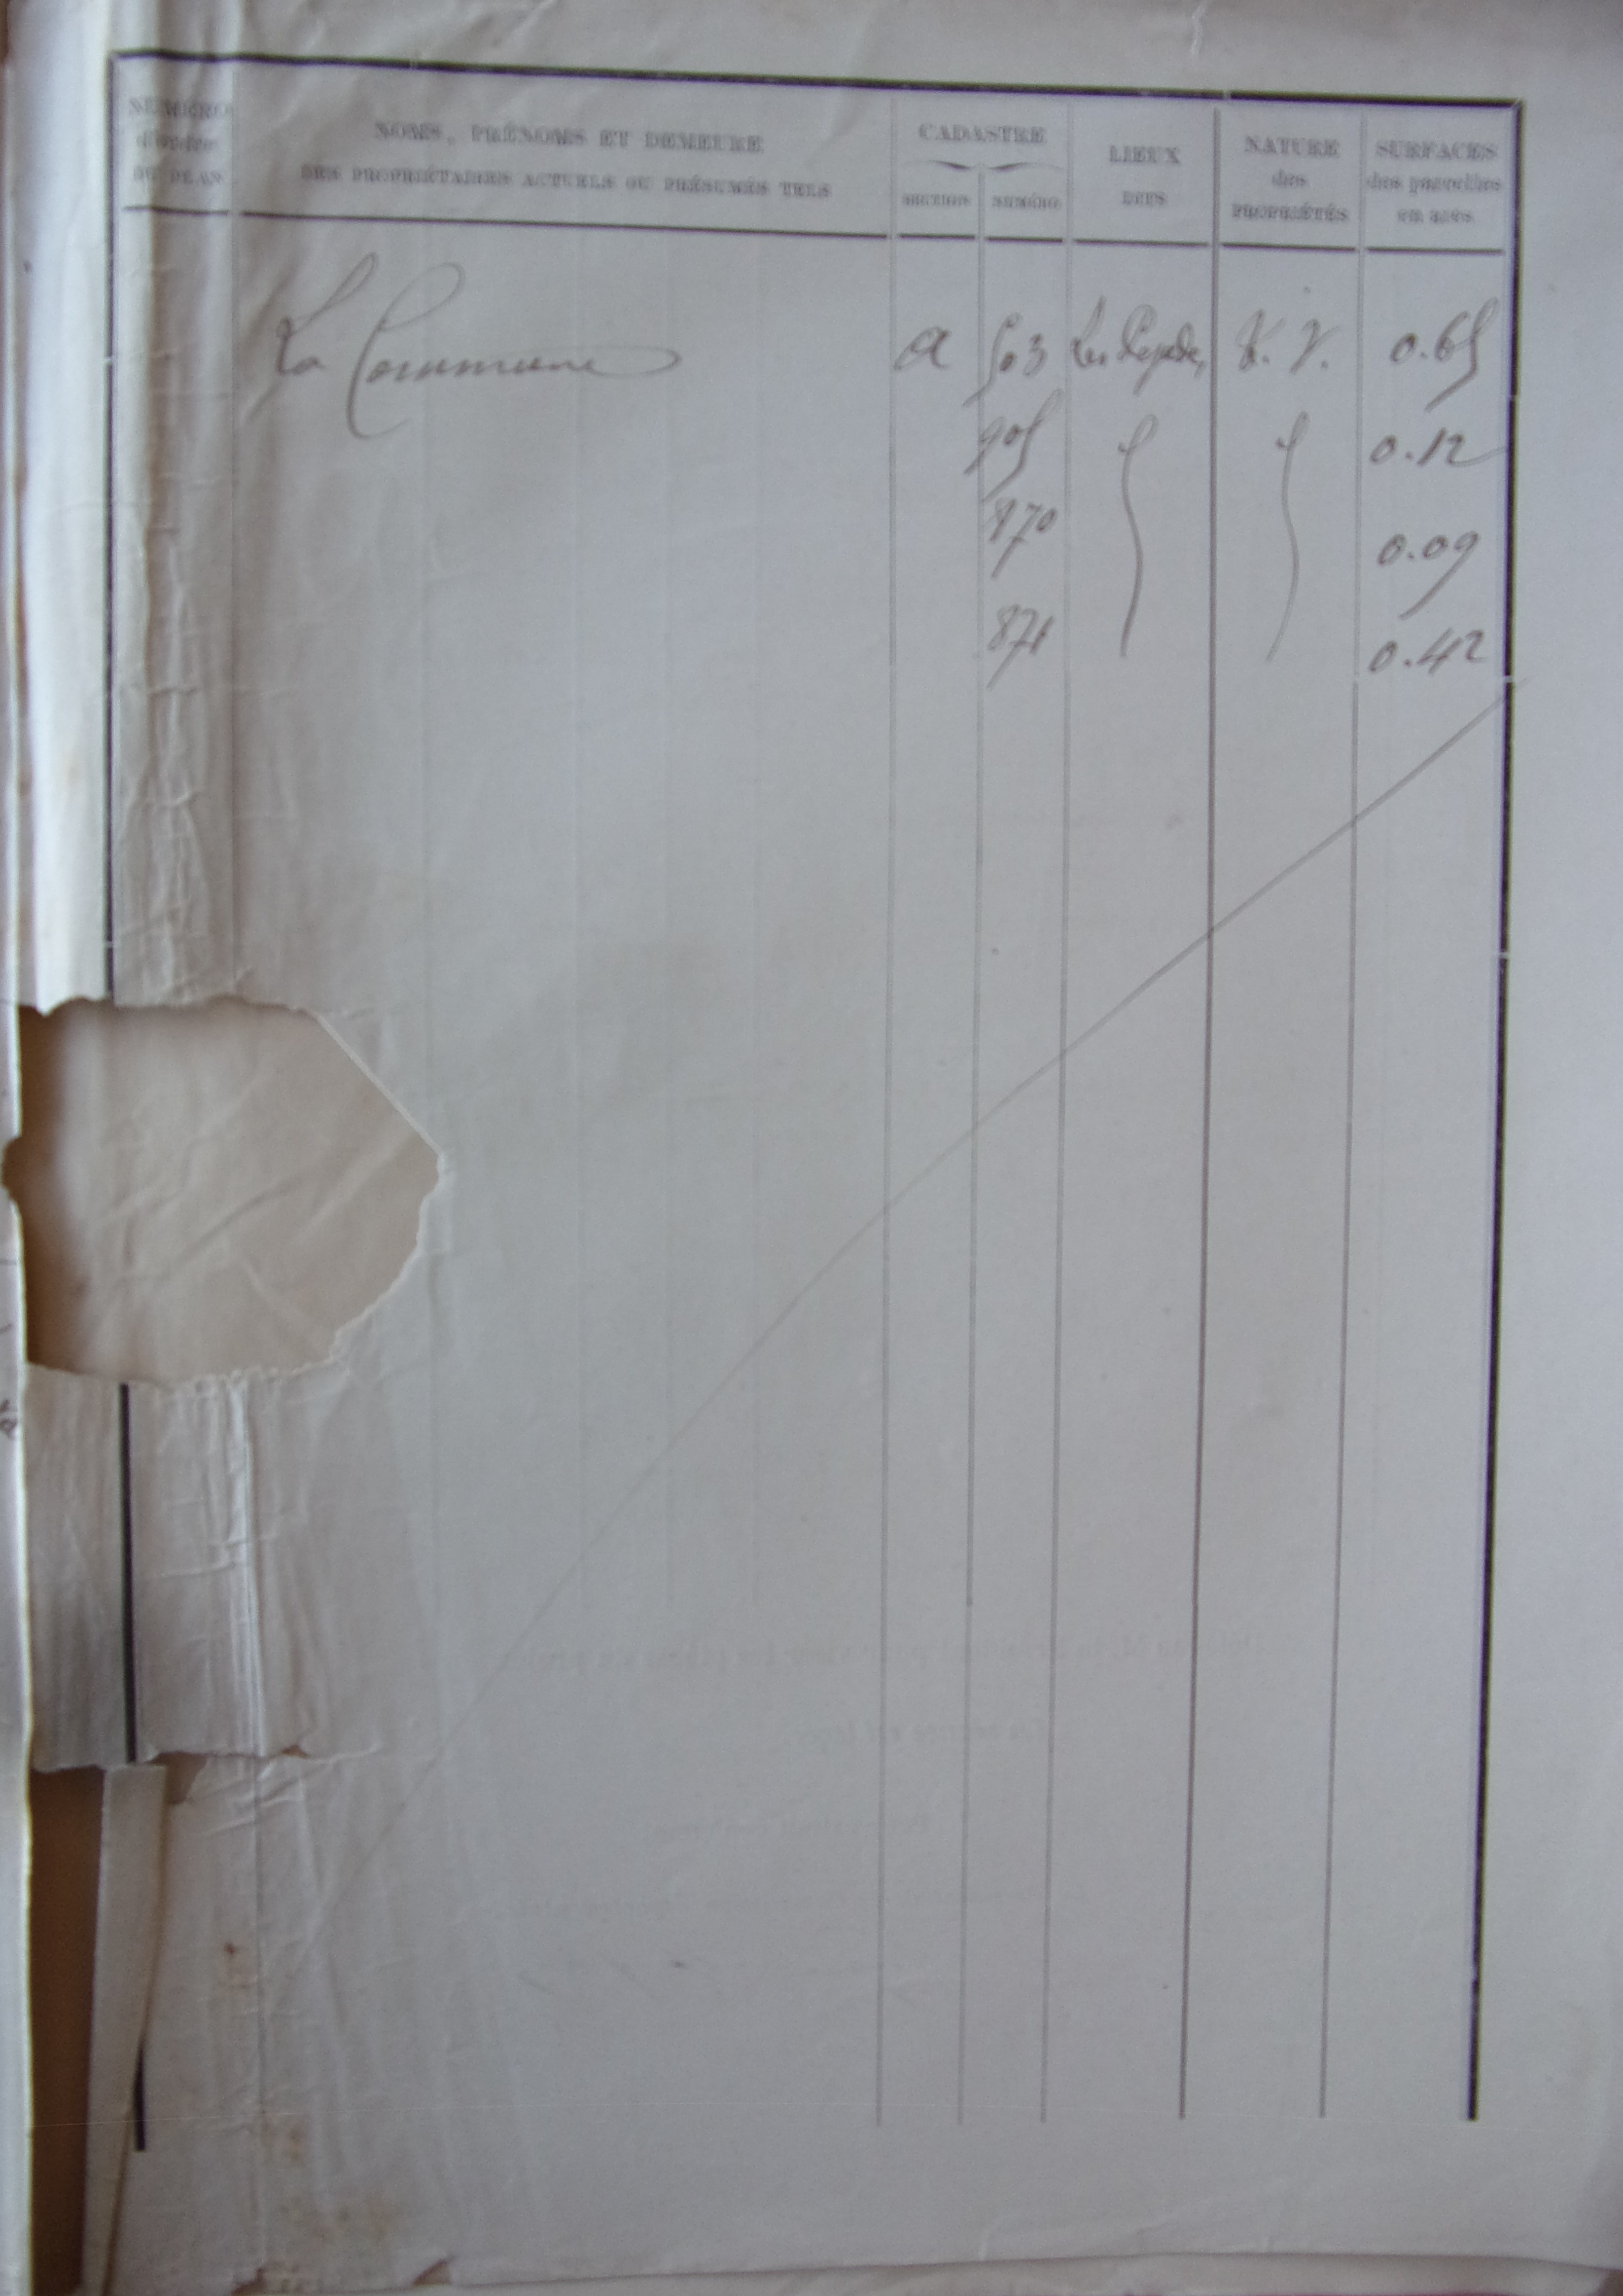 NUMÉRO d'ordre DU PLAN
NOMS, PRÉNOMS ET DEMEURE
DES PROPRIÉTAIRES ACTUELS OU PRÉSUMÉS TELS
CADASTRE
SECTION NUMÉRO
LIEUX
DITS
NATURE
des
PROPRIÉTÉS
SURFACES
des parcelles
en ares
La Commune a 503 Les V. V. 0.65
905 0.12
870 0.09
871 0.42